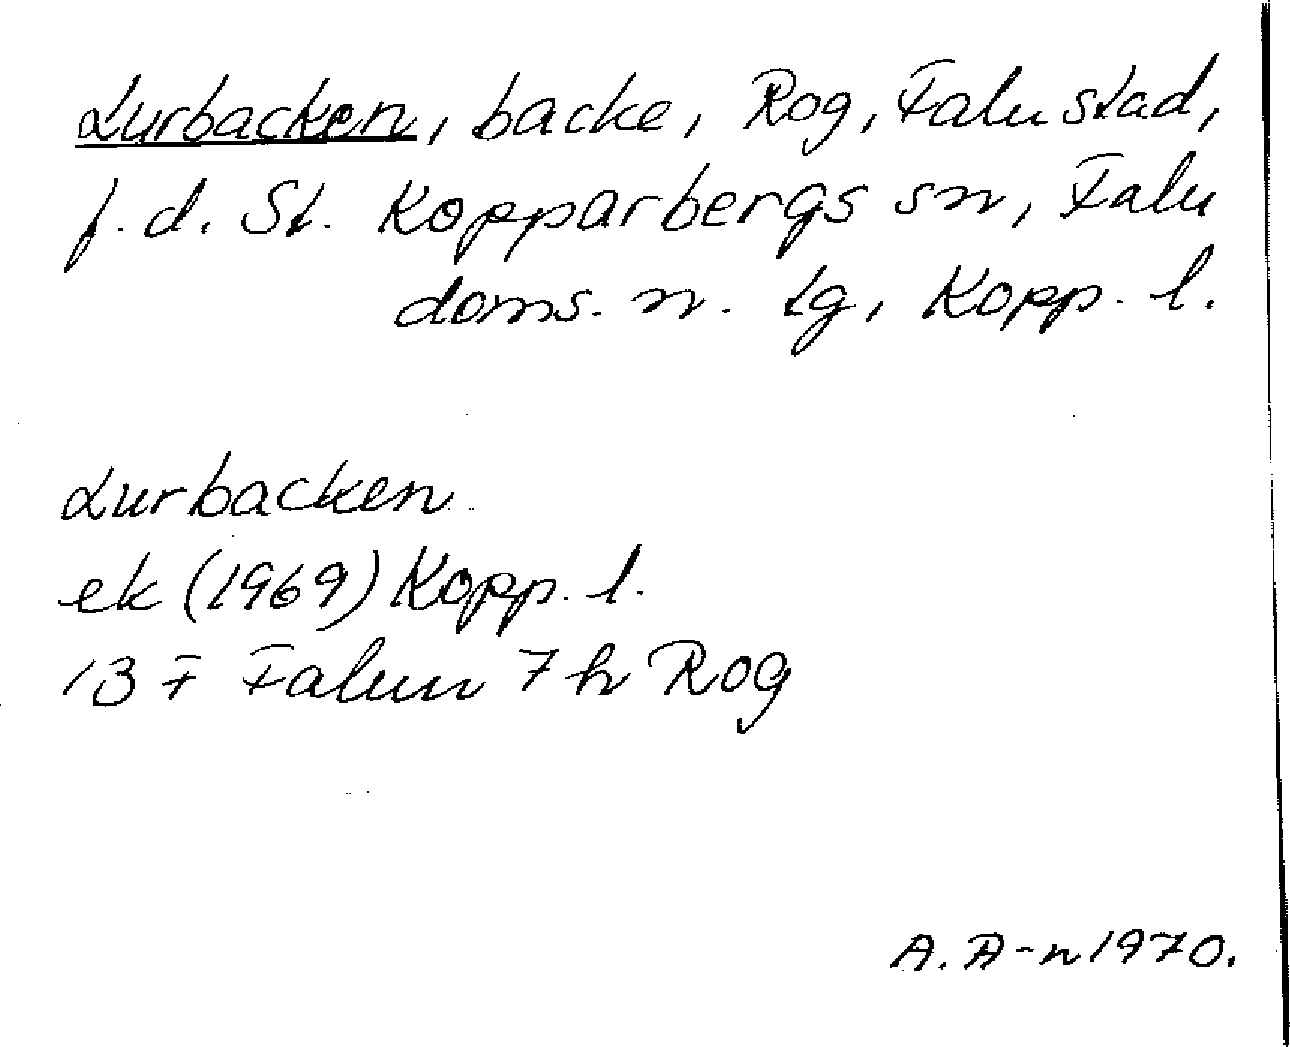 Lurbacken, backe, Rog, Falu stad,
f.d. St. Kopparbergs sn, Falu
doms. n. tg, Kopp. l.
Lurbacken
ek (1969) Kopp. l.
13 F Falun 7 h Rog
A. A-n 1970.